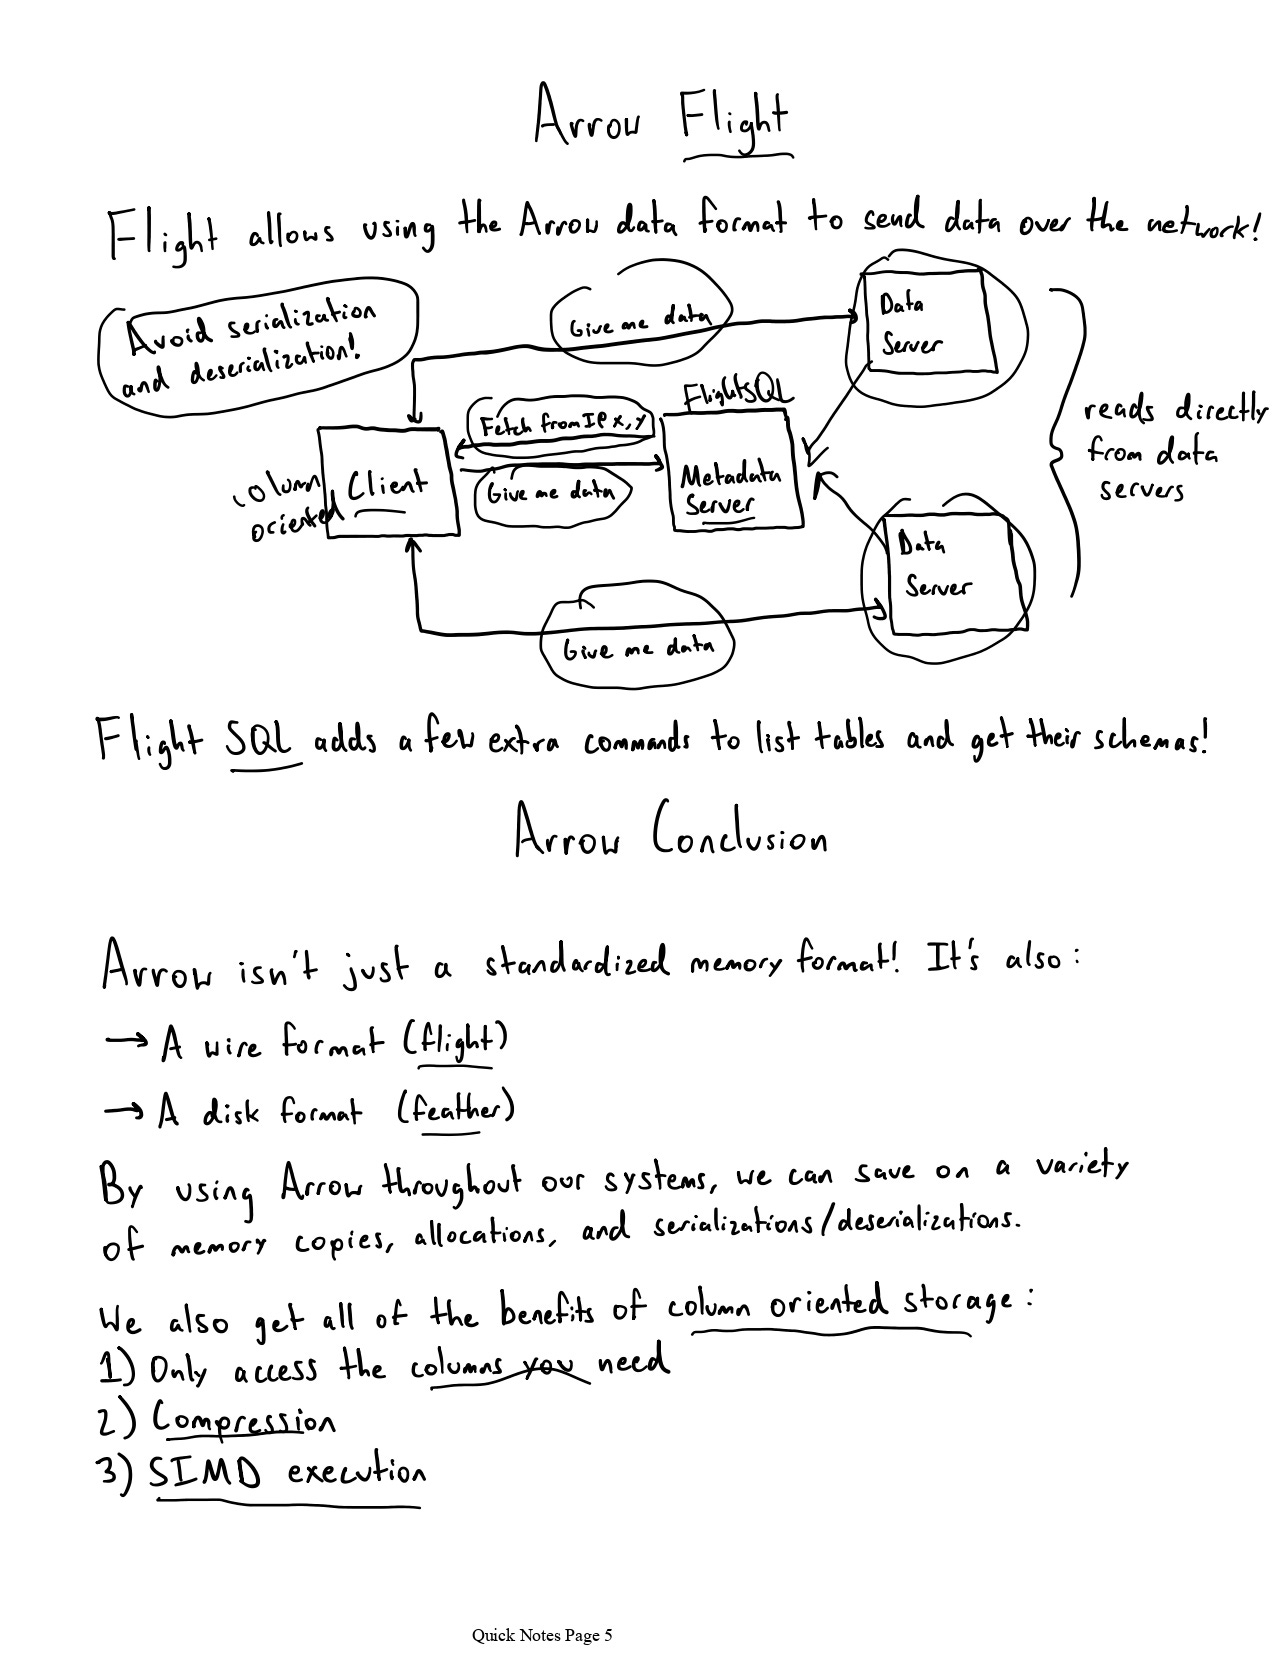 Arrow Flight
Flight allows using the Arrow data format to send data over the network!
Avoid serialization
and deserialization!
Give me data
Data
Server
FlightSQL
Fetch from IP x, y
reads directly
from data
servers
column
oriented
Client
Give me data
Metadata
Server
Data
Server
Give me data
Flight SQL adds a few extra commands to list tables and get their schemas!
Arrow Conclusion
Arrow isn't just a standardized memory format! It's also:
→ A wire format (flight)
→ A disk format (feather)
By using Arrow throughout our systems, we can save on a variety
of memory copies, allocations, and serializations/deserializations.
We also get all of the benefits of column oriented storage:
1) Only access the columns you need
2) Compression
3) SIMD execution
Quick Notes Page 5